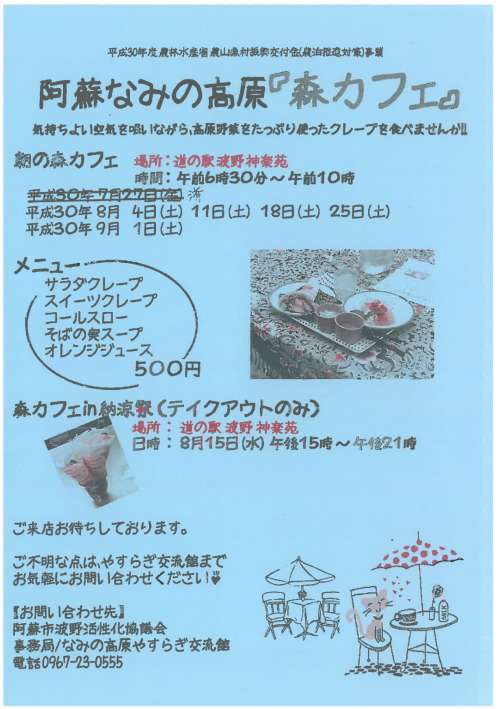 平成30年度 農林水産省 農山漁村振興交付金(農泊推進対策)事業
阿蘇なみの高原『森カフェ』
気持ちよい空気を吸いながら、高原野菜をたっぷり使ったクレープを食べませんか!!
朝の森カフェ 場所:道の駅波野神楽苑
時間:午前6時30分~午前10時
平成30年 7月27日(金) 済
平成30年 8月 4日(土) 11日(土) 18日(土) 25日(土)
平成30年 9月 1日(土)
メニュー
サラダクレープ
スイーツクレープ
コールスロー
そばの実スープ
オレンジジュース
500円
森カフェin納涼祭(テイクアウトのみ)
場所: 道の駅 波野 神楽苑
日時: 8月15日(水) 午後15時~午後21時
ご来店お待ちしております。
ご不明な点は、やすらぎ交流館まで
お気軽にお問い合わせください
【お問い合わせ先】
阿蘇市波野活性化協議会
事務局/なみの高原やすらぎ交流館
電話0967-23-0555